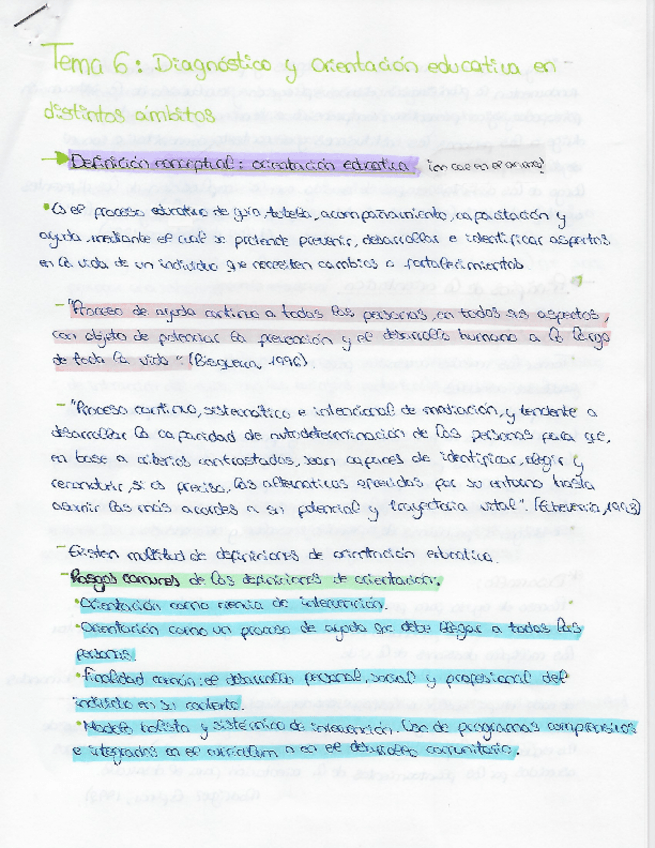 Tema 6: Diagnóstico y orientación educativa en
distintos ámbitos
→ Definición conceptual: orientación educativa, ¡en cae en el examen!
• Es el proceso educativo de guía, tutela, acompañamiento, capacitación y
ayuda, mediante el cual se pretende prevenir, desarrollar e identificar aspectos
en la vida de un individuo que necesiten cambios o fortalecimientos
- "Proceso de ayuda continuo a todas las personas, en todos sus aspectos,
con objeto de potenciar la prevención y el desarrollo humano a lo largo
de toda la vida". (Bisquerra, 1996).
- "Proceso continuo, sistemático e intencional de mediación, y tendente a
desarrollar la capacidad de autodeterminación de las personas para que,
en base a criterios contrastados, sean capaces de identificar, elegir y
reconducir, si es preciso, las alternativas ofrecidas por su entorno hasta
asumir las más acordes a su potencial y trayectoria vital". (Echeverría, 1993)
- Existen multitud de definiciones de orientación educativa.
- Rasgos comunes de las definiciones de orientación.
• Orientación como ciencia de intervención.
• Orientación como un proceso de ayuda que debe llegar a todas las
personas.
• Finalidad común: el desarrollo personal, social y profesional del
individuo en su contexto.
• Modelo holista y sistémico de intervención. Uso de programas comprensivos
e integrados en el curriculum o en el desarrollo comunitario.